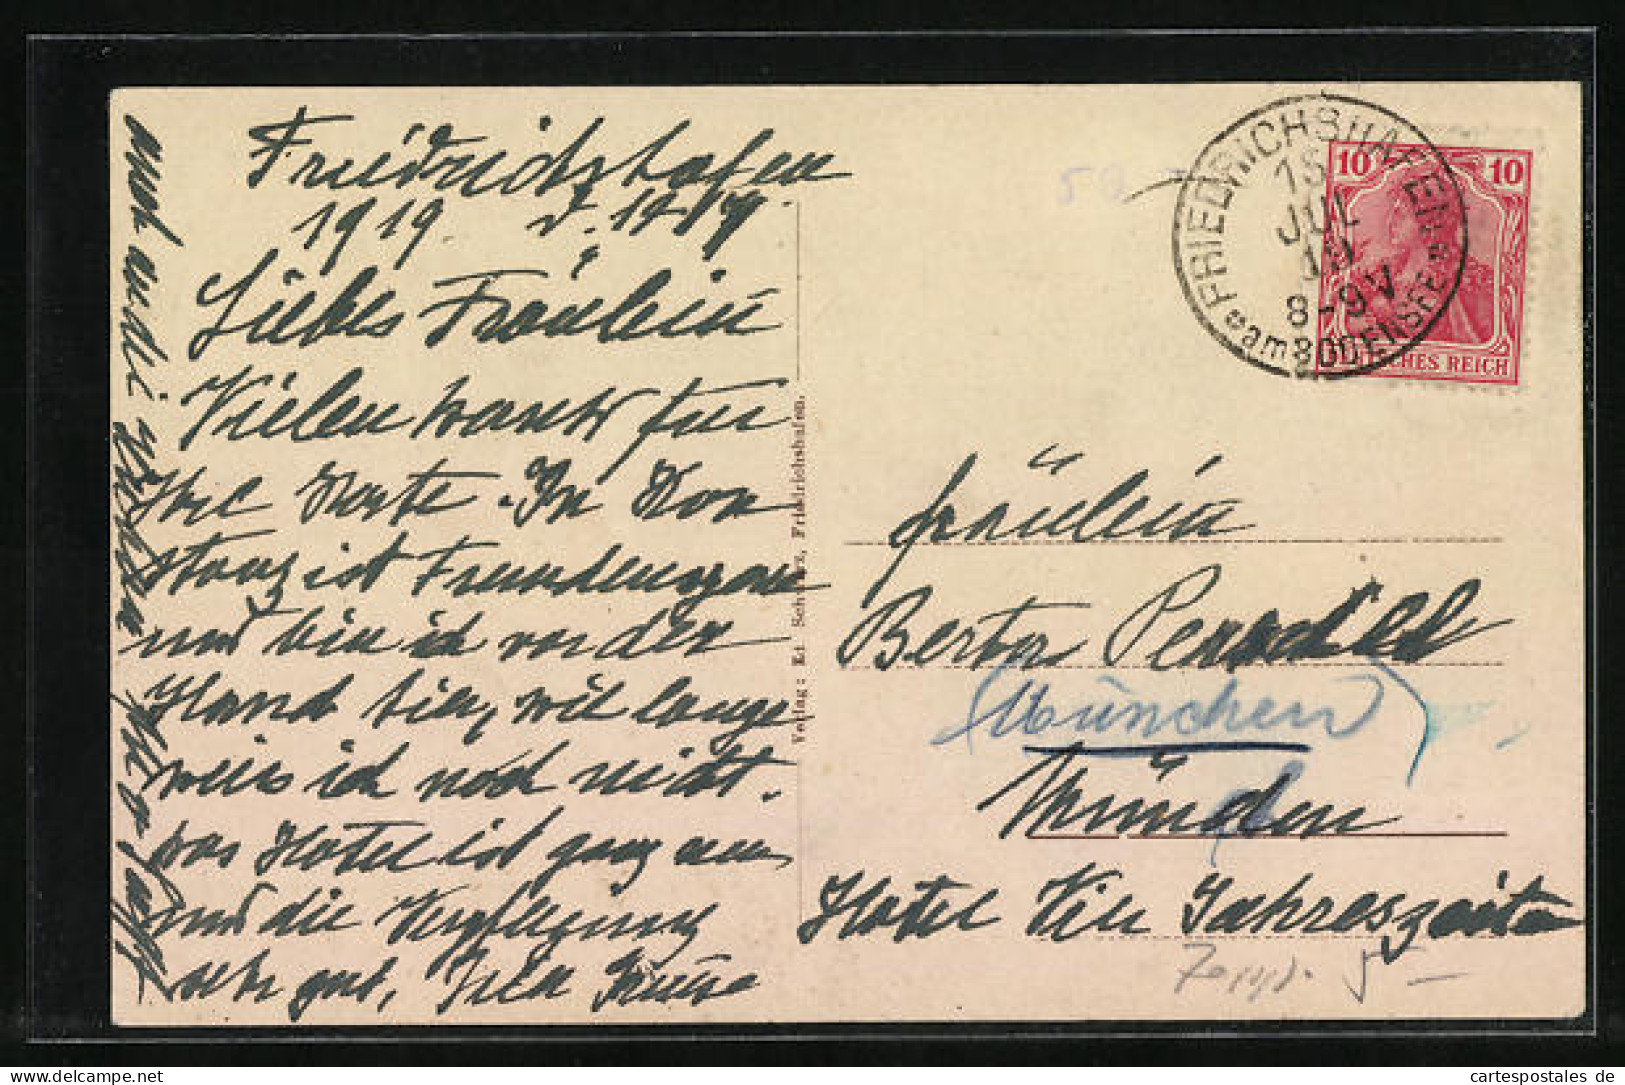 Friedrichshafen
1919. d. 17/7.
Liebes Fräulein
Vielen Dank für
Ihre Karte. In Kon
stanz ist Fremdenzon
und bin ich vor der
Hand hier, wie lange
weiss ich noch nicht.
Das Hotel ist ganz neu
und die Verpflegung
sehr gut, Viele Grüsse
auch an die
Verlag: Ed. Schwarz, Friedrichshafen.
FRIEDRICHSHAFEN
18
JUL
19
8-9V
am BODENSEE
10 10
DEUTSCHES REICH
58
Fräulein
Berta
(München)
München
Hotel Vier Jahreszeiten
5 -
cartespostales de